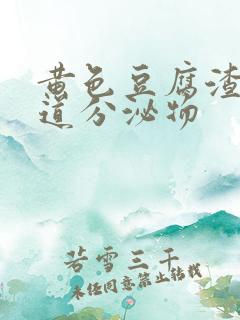 黄色豆腐渣
道分泌物
若雪三千
未经同意禁止转载